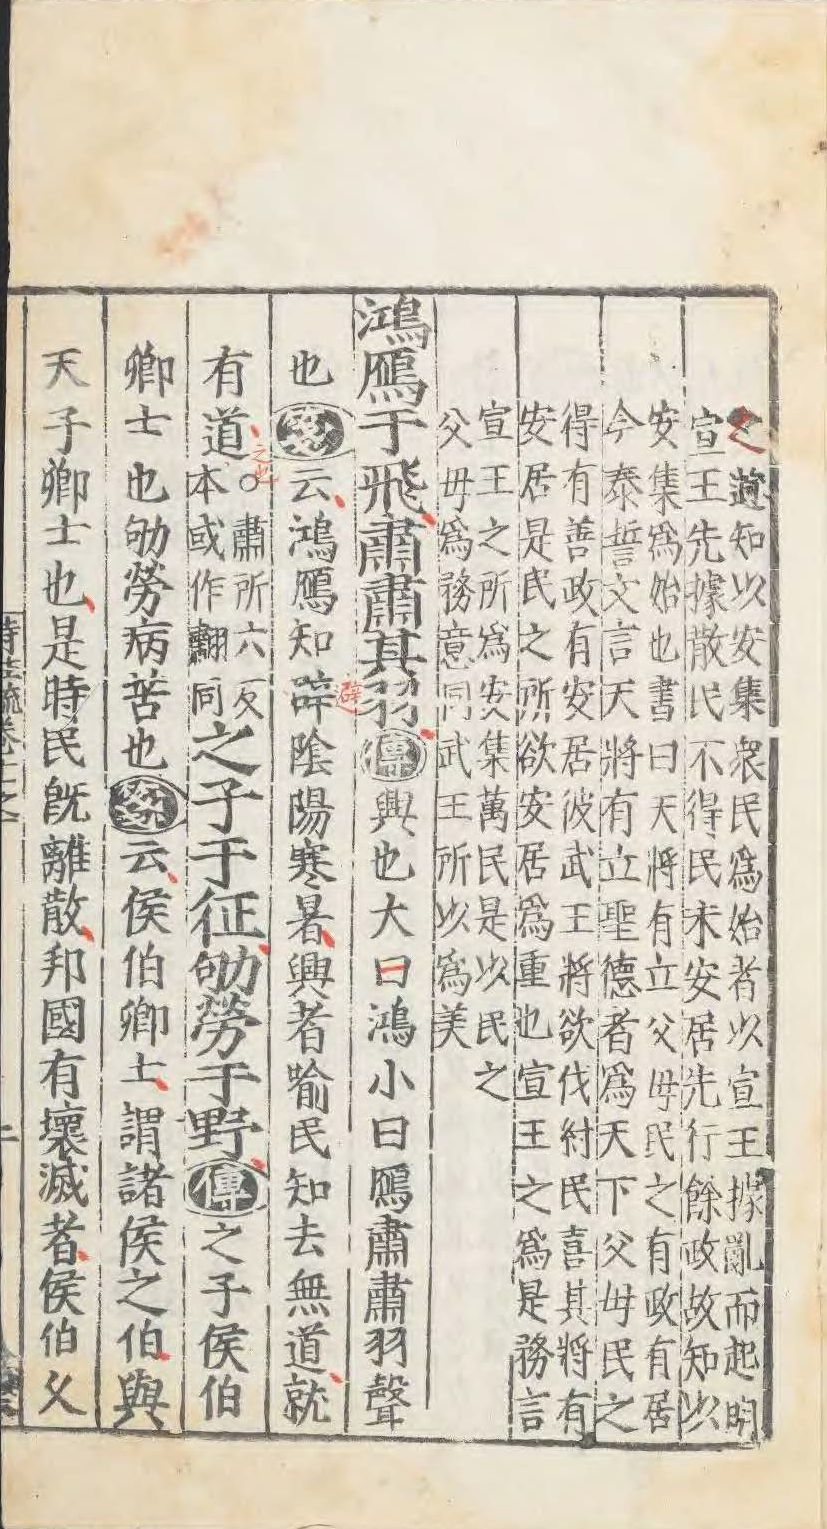 之
道知以安集衆民爲始者以宣王據亂而起明
宣王先據散民不得民未安居先行餘政故知以
安集爲始也書曰天將有立父母民之有政有居
今泰誓文言天將有立聖德者爲天下父母民之
得有善政有安居彼武王將欲伐紂民喜其將有
安居是民之所欲安居爲重也宣王之爲是務言
宣王之所爲安集萬民是以民之
父母爲務意同武王所以爲美
鴻鴈于飛肅肅其羽傳興也大曰鴻小曰鴈肅肅羽聲
避
也箋云鴻鴈知辟陰陽寒暑興者喻民知去無道就
有道
之也
○肅所六反
本或作翿同
之子于征劬勞于野傳之子侯伯
卿士也劬勞病苦也箋云侯伯卿士謂諸侯之伯與
天子卿士也是時民旣離散邦國有壞滅者侯伯乆